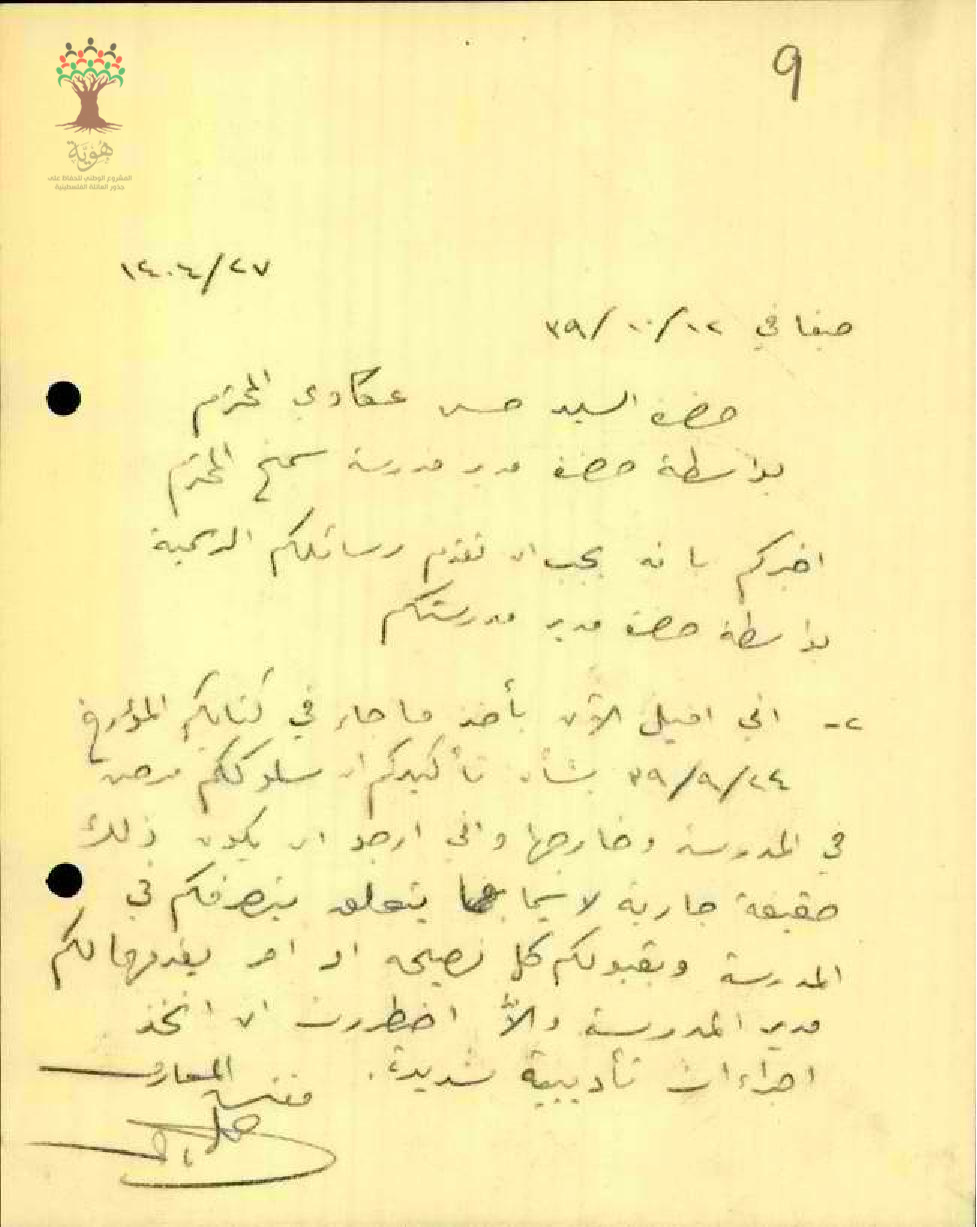 9
هُوِيَّة
المشروع الوطني للحفاظ على
جذور العائلة الفلسطينية
١٤٠٤/٢٧
صفا في ١٢/١٠/٣٩
حضرة السيد حسن عكاوي المحترم
بواسطة حضرة مدير مدرسة سمخ المحترم
اخبركم بانه يجب ان تقدم رسائلكم الرسمية
بواسطة حضرة مدير مدرستكم
٢- اني اميل الآن بأخذ ما جاء في كتابكم المؤرخ
٢٤/٩/٣٩ بشأن تأكيدكم ان سلوككم مرضي
في المدرسة وخارجها واني ارجو ان يكون ذلك
حقيقة جارية لا سيما بما يتعلق بتصرفكم في
المدرسة وبقبولكم كل نصيحه او امر يقدمها لكم
مدير المدرسة والاّ اضطررت ان اتخذ
اجراءات تأديبية شديدة.
مفتش المعارف